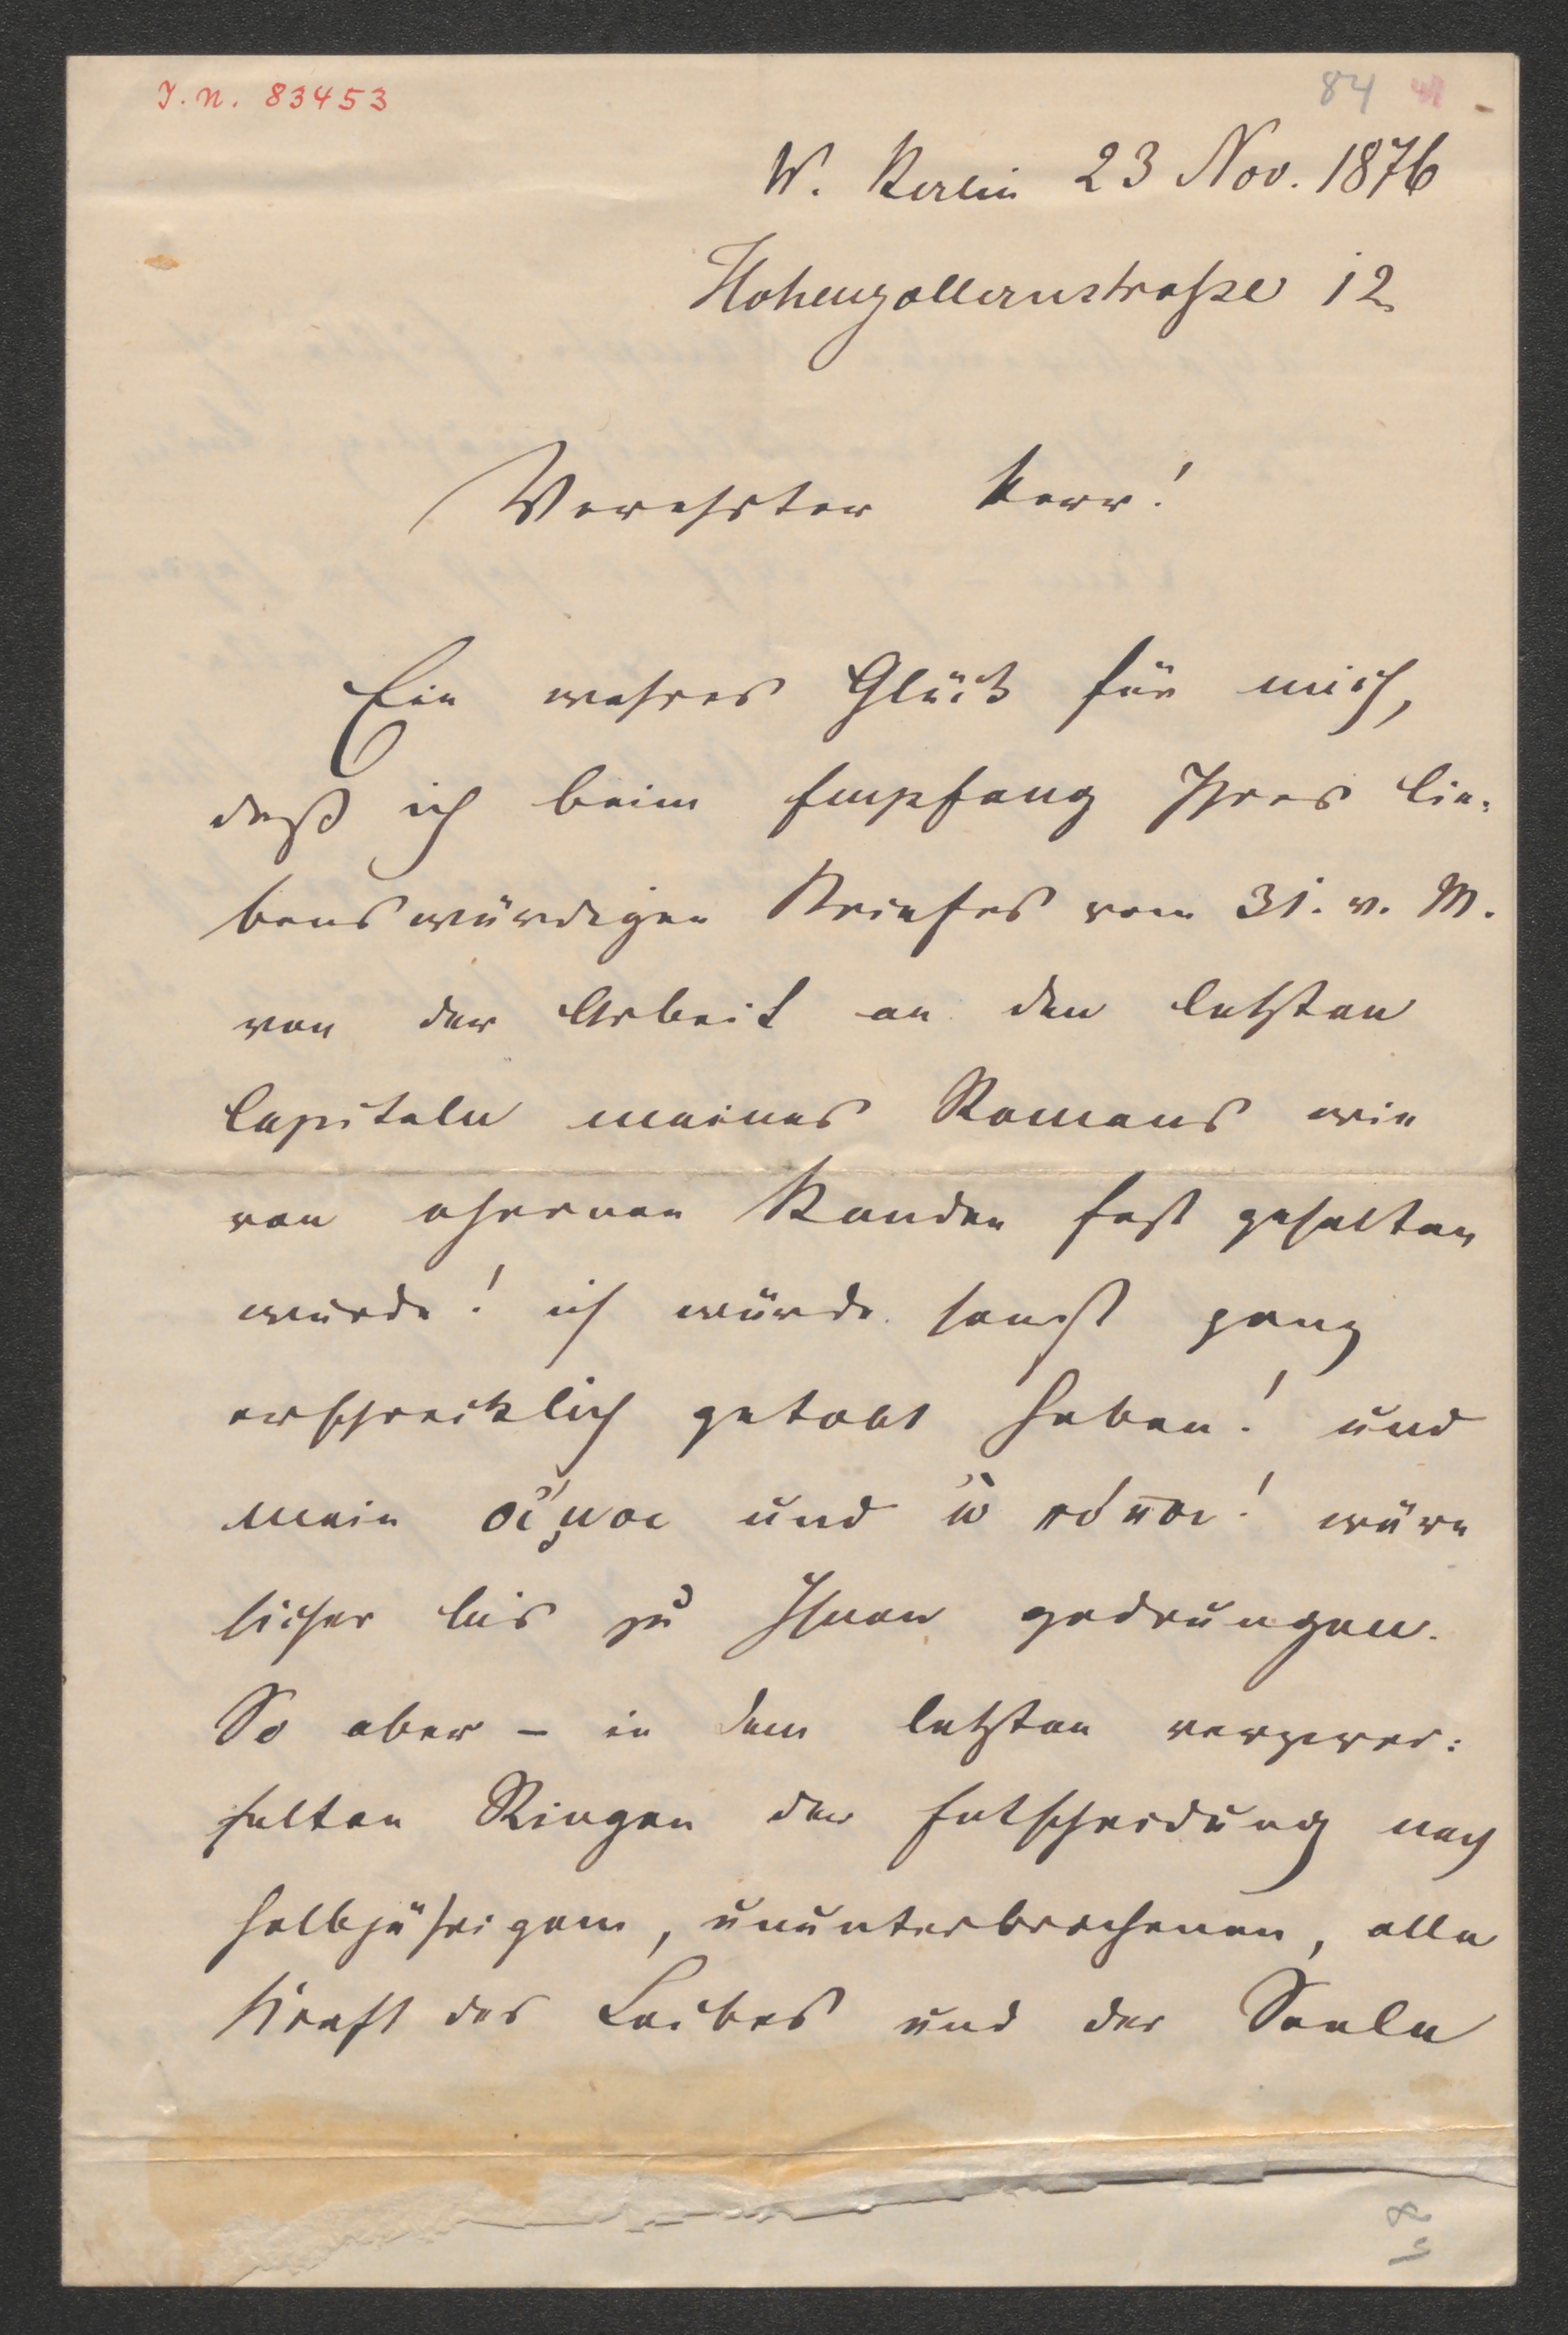 J. N. 83453
84
W. Berlin 23 Nov. 1876
Hohenzollernstraße 12
Verehrter Herr!
Ein wahres Glück für mich,
daß ich beim Empfang Ihres lie-
benswürdigen Briefes vom 31. v. M.
von der Arbeit an den letzten
Capiteln meines Romans wie
von ehernen Banden fest gehalten
wurde! ich würde sonst ganz
erschrecklich getobt haben! und
mein οἴμοι und ὢ πόποι! wäre
sicher bis zu Ihnen gedrungen.
So aber – in dem letzten verzwei-
felten Ringen der Entscheidung nach
halbjährigem, ununterbrochenen, alle
Kraft des Leibes und der Seele